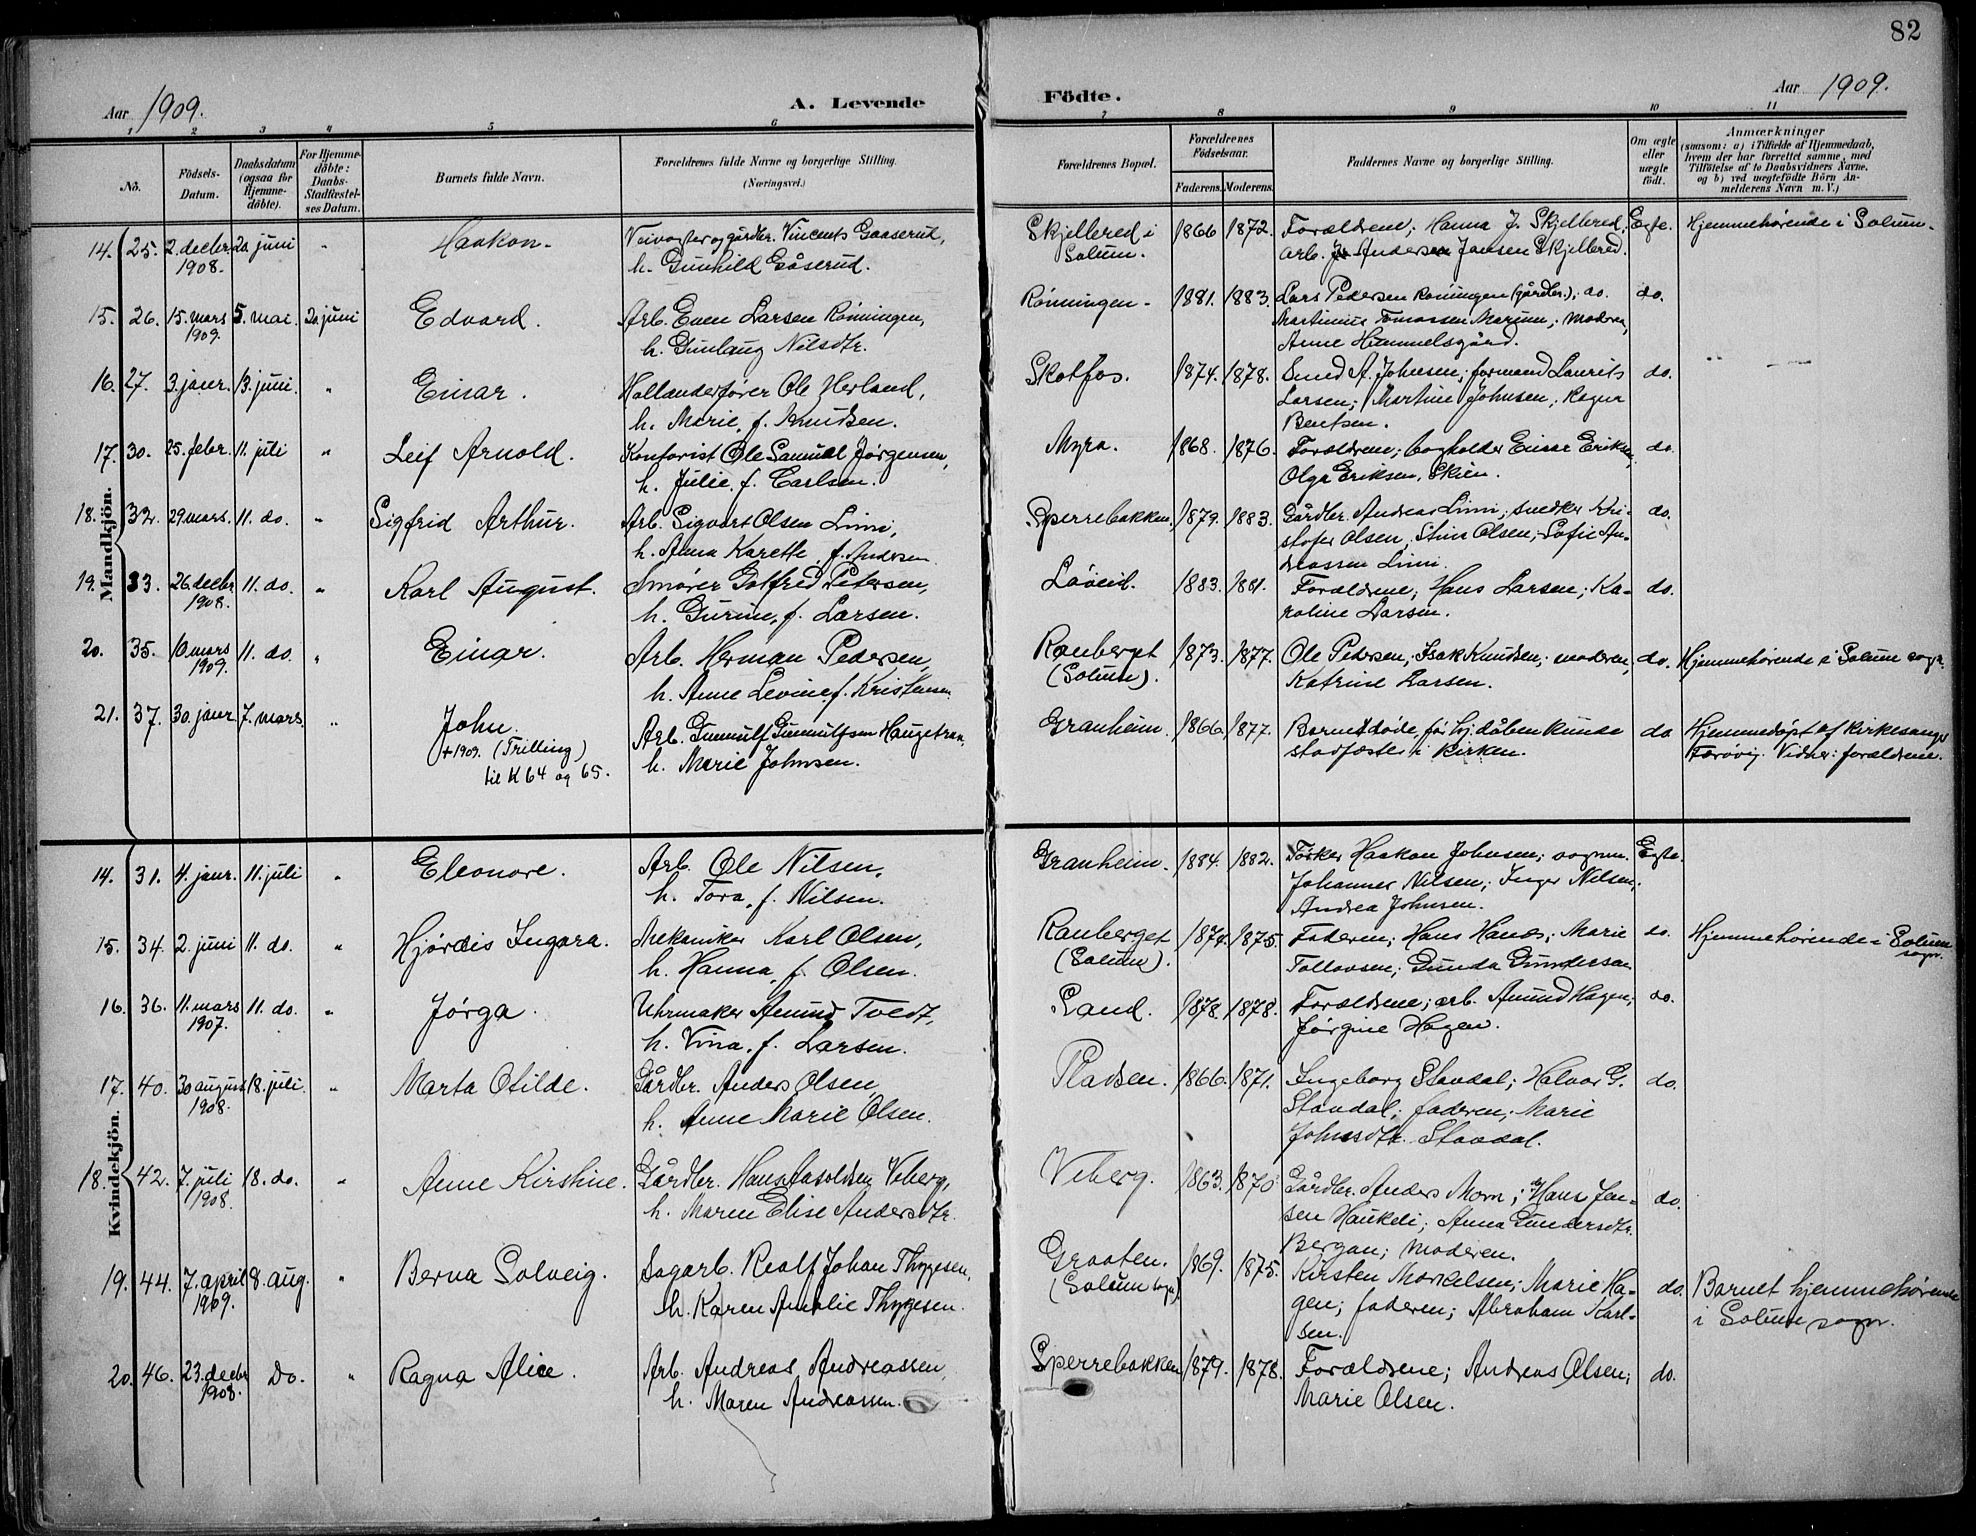 82
Aar 1909.
A. Levende
Födte.
Aar 1909.
1 2 3 4 5 6 7 8 9 10 11
No.
Födsels-
Datum.
Daabsdatum
(ogsaa for
Hjemme-
döbte).
For Hjemme-
döbte:
Daabs-
Stadfæstel-
ses Datum.
Barnets fulde Navn.
Forældrenes fulde Navne og borgerlige Stilling.
(Næringsvei.)
Forældrenes Bopæl.
Forældrenes
Födselsaar.
Faderens. Moderens.
Faddernes Navne og borgerlige Stilling.
Om ægte
eller
uægte
født.
Anmærkninger
(saasom: a) i Tilfælde af Hjemmedaab,
hvem der har forrettet samme, med
Tilföielse af to Daabsvidners Navne,
og b) ved uægtefödte Börn An-
melderens Navn m. V.)
Mandkjön.
14. 25. 2. decbr. 20. juni " Haakon. Veivogter og gårdbr. Vincents Gaaserud, Skjelbred i 1866 1872. Forældrene; Hanna J. Skjelbred, Egte. Hjemmehørende i Solum.
1908. h. Gunhild Gåserud. Solum. arb. Anders Jansen Skjelbred.
15. 26. 15. mars 5. mai. 20. juni Edvard. Arb. Even Larsen Rönningen, Rönningen. 1881. 1883. Lars Pedersen Rönningen (gårdbr.); do. do.
1909. h. Gunlaug Nilsdtr. Martinius Tomassen Marum; moderen,
Anne Himmelsgård.
16. 27. 3. janr. 13. juni. " Einar. Hollanderfører Ole Herland, Skotfos. 1874. 1878. Smed A. Johnsen; formand Laurits do.
h. Marie, f. Knudsen. Larsen; Martine Johnsen, Ragna
Bentsen.
17. 30. 25. febr. 11. juli " Leif Arnold. Kontorist Ole Samuel Jørgensen, Myra. 1868. 1876. Forældrene; bogholder Einar Eriksen, do.
h. Julie, f. Carlsen. Olga Eriksen, Skien.
18. 32. 29. mars. 11. do. " Sigfrid Arthur. Arb. Sigvart Olsen Limi, Sperrebakken. 1879. 1883. Gårdbr. Andreas Limi; snedker Kri- do.
h. Anna Karette, f. Andersen stofer Olsen, Stina Olsen; Sofie An-
dreassen Limi.
19. 33. 26. decbr. 11. do. " Karl August. Smører Gotfred Petersen, Løveid. 1883. 1881. Forældrene; Hans Larsen; Ka- do.
1908. h. Gurine, f. Larsen. roline Larsen.
20. 35. 10. mars 11. do. " Einar. Arb. Herman Pedersen, Rauberget 1873. 1877. Ole Pedersen; Isak Knudsen; moderen; do. Hjemmehørende i Solum sogn.
1909. h. Anne Levine f. Kristensen (Solum). Katrine Larsen.
21. 37. 30. janr. 7. mars. " John. Arb. Gunnulf Gunnulfsen Haugetraa, Granheim. 1866. 1877. Barnet døde, før hj.dåben kunde do Hjemmedøpt af kirkesanger
+ 1909. (Trilling) h. Marie Johnsen. stadfæstes i kirken. Forøvrig. Vidner: forældrene.
til K 64 og 65.
Kvindekjön.
14. 31. 4. janr. 11. juli " Eleonore. Arb. Ole Nilsen, Granheim. 1884. 1882. Tørker Haakon Johnsen; vognm. Egte.
h. Tora, f. Nilsen. Johannes Nilsen; Inger Nilsen;
Andrea Johnsen.
15. 34. 2. juni 11. do. " Hjördis Ingara. Mekaniker Karl Olsen, Rauberget 1874. 1875. Faderen; Hans Hansen; Marie do. Hjemmehørende i Solum
h. Hanna, f. Olsen. (Solum). Tollovsen; Gunda Gundersen sogn.
16. 36. 11. mars 11. do. " Jørga. Uhrmaker Amund Tvedt, Sand. 1878. 1878. Forældrene; arb. Amund Hagen; do.
1907. h. Vina, f. Larsen. Jørgine Hagen.
17. 40. 30 august 18. juli. " Marta Otilde. Gårdbr. Anders Olsen, Pladsen. 1866. 1871. Ingeborg Stavdal; Halvor G. do.
1908. h. Anne Marie Olsen. Stavdal; faderen; Marie
Johnsdtr. Stavdal.
18. 42. 7. juli 18. do. " Anne Kirstine. Gårdbr. Hans Aasoldsen Veberg, Veberg. 1863. 1870 Gårdbr. Anders Mom; Hans Jen- do.
1908. h. Maren Elise Andersdtr. sen Haukeli; Anna Gundersdtr.
Bergan; moderen.
19. 44. 7. april 8. aug. " Berna Solveig. Sagarb. Realf Johan Thygesen, Graaten. 1869. 1875. Kirsten Mækelsen; Marie Ha- do. Barnet hjemmehørende
1909. h. Karen Amalie Thygesen. (Solum sogn) gen; faderen; Abraham Karl- i Solum sogn.
sen.
20. 46. 23. decbr. Do. " Ragna Alice. Arb. Andreas Andreassen, Sperrebakken 1879. 1878. Forældrene; Andreas Olsen; do.
1908. h. Maren Andreassen. Marie Olsen.